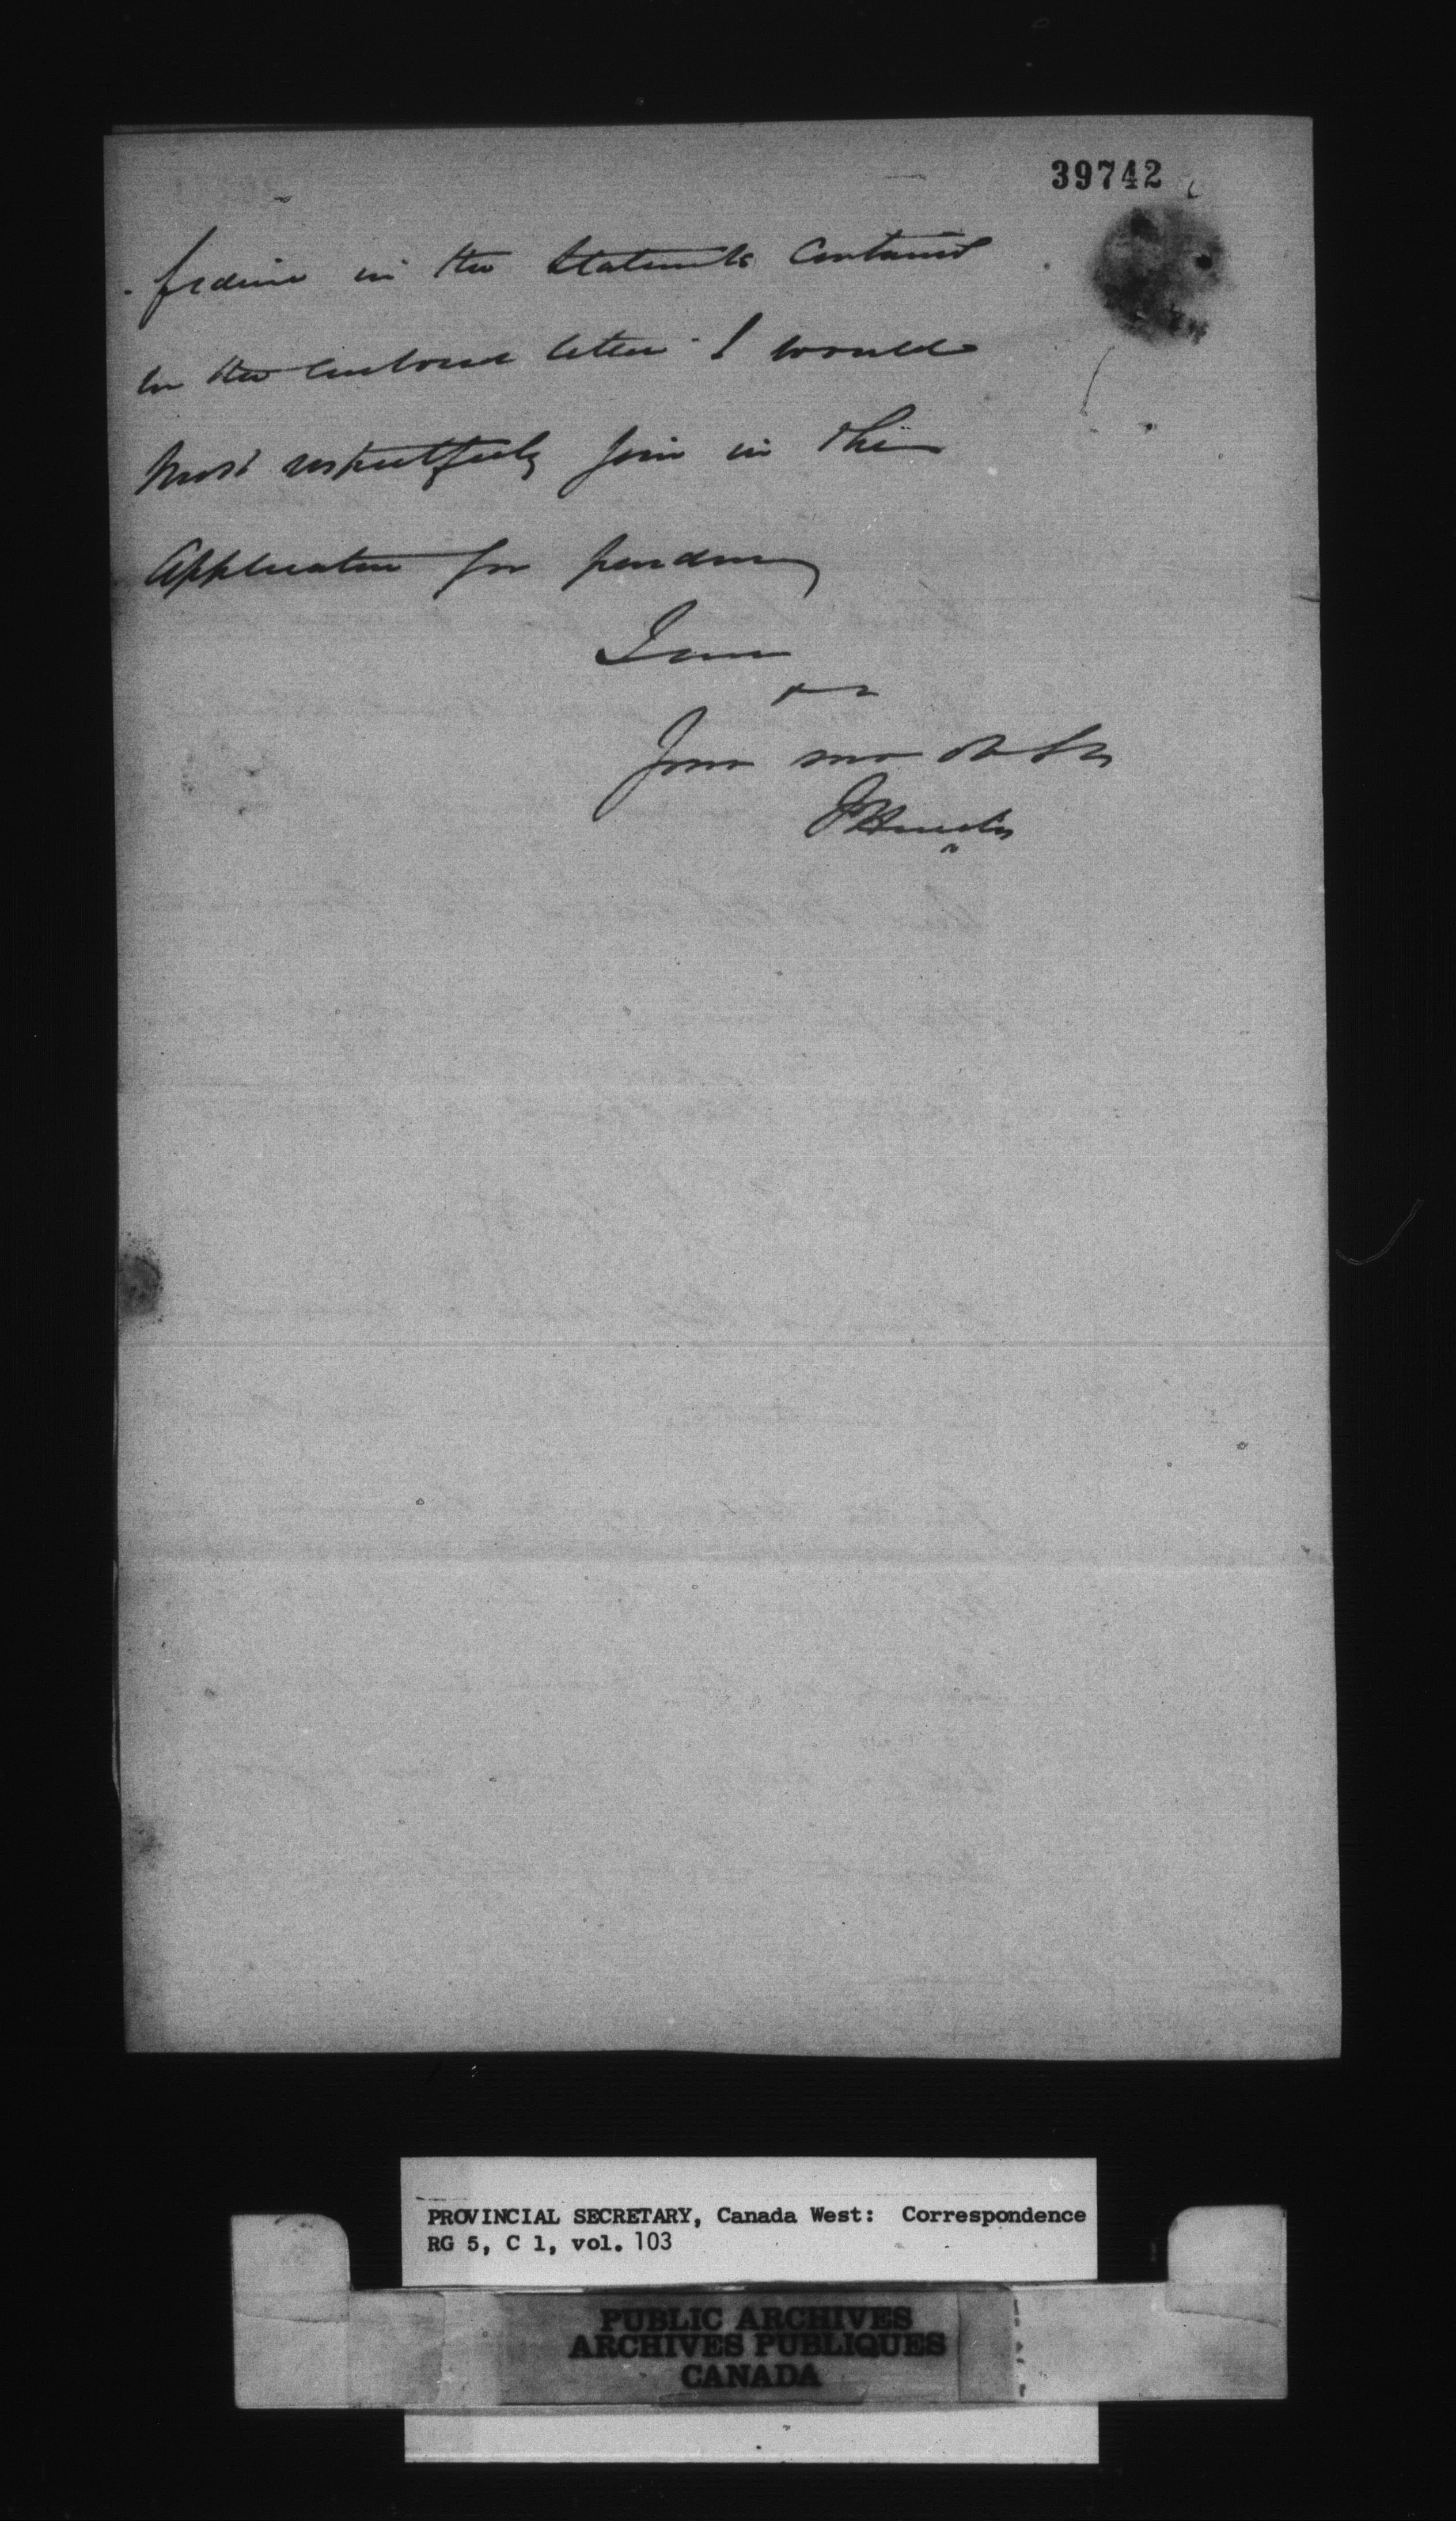 39742
-fidence in the Statements Contained
in the enclosed letter I would
Most respectfully join in this
Application for pardon
I am
Your mo Ob St
PROVINCIAL SECRETARY, Canada West: Correspondence
RG 5, C 1, vol. 103
PUBLIC ARCHIVES
ARCHIVES PUBLIQUES
CANADA